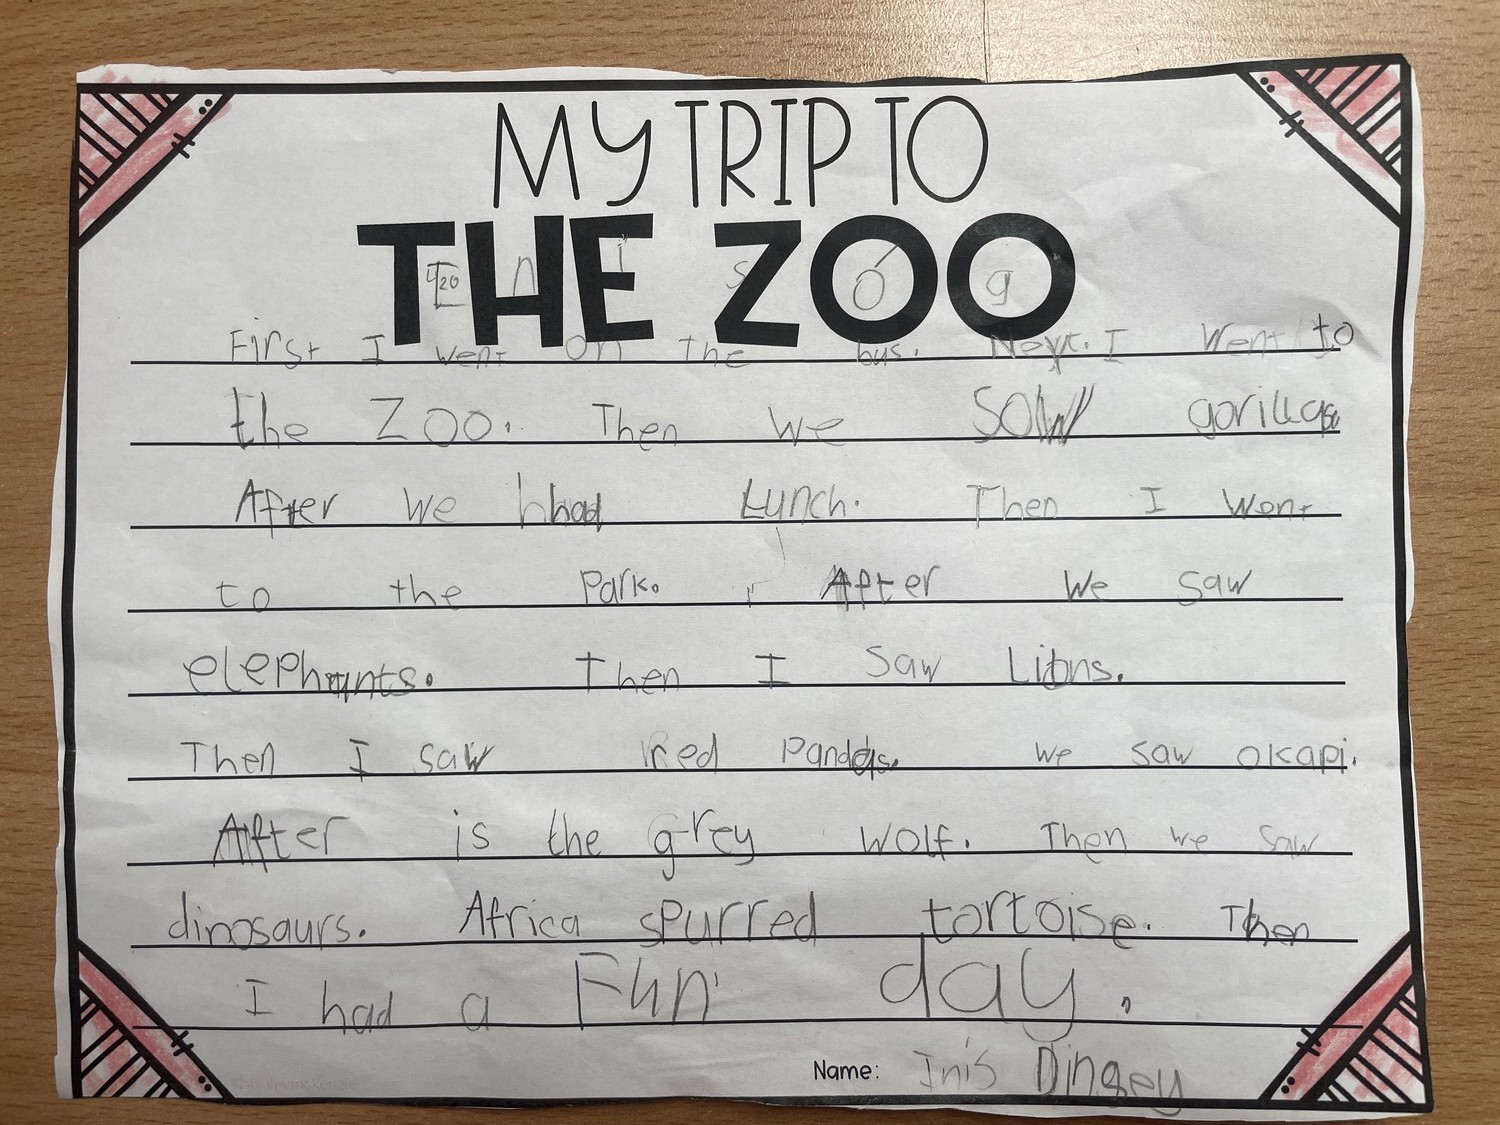 MY TRIP TO
THE ZOO
First I went on the bus. Next. I went to
the Zoo. Then we saw gorillas
After we had Lunch. Then I went
to the Park. After we saw
elephants. Then I saw Lions.
Then I saw red Pandas. we saw okapi.
After is the grey wolf. Then we saw
dinosaurs. Africa spurred tortoise. Then
I had a Fun day.
Name: Inis Dingey